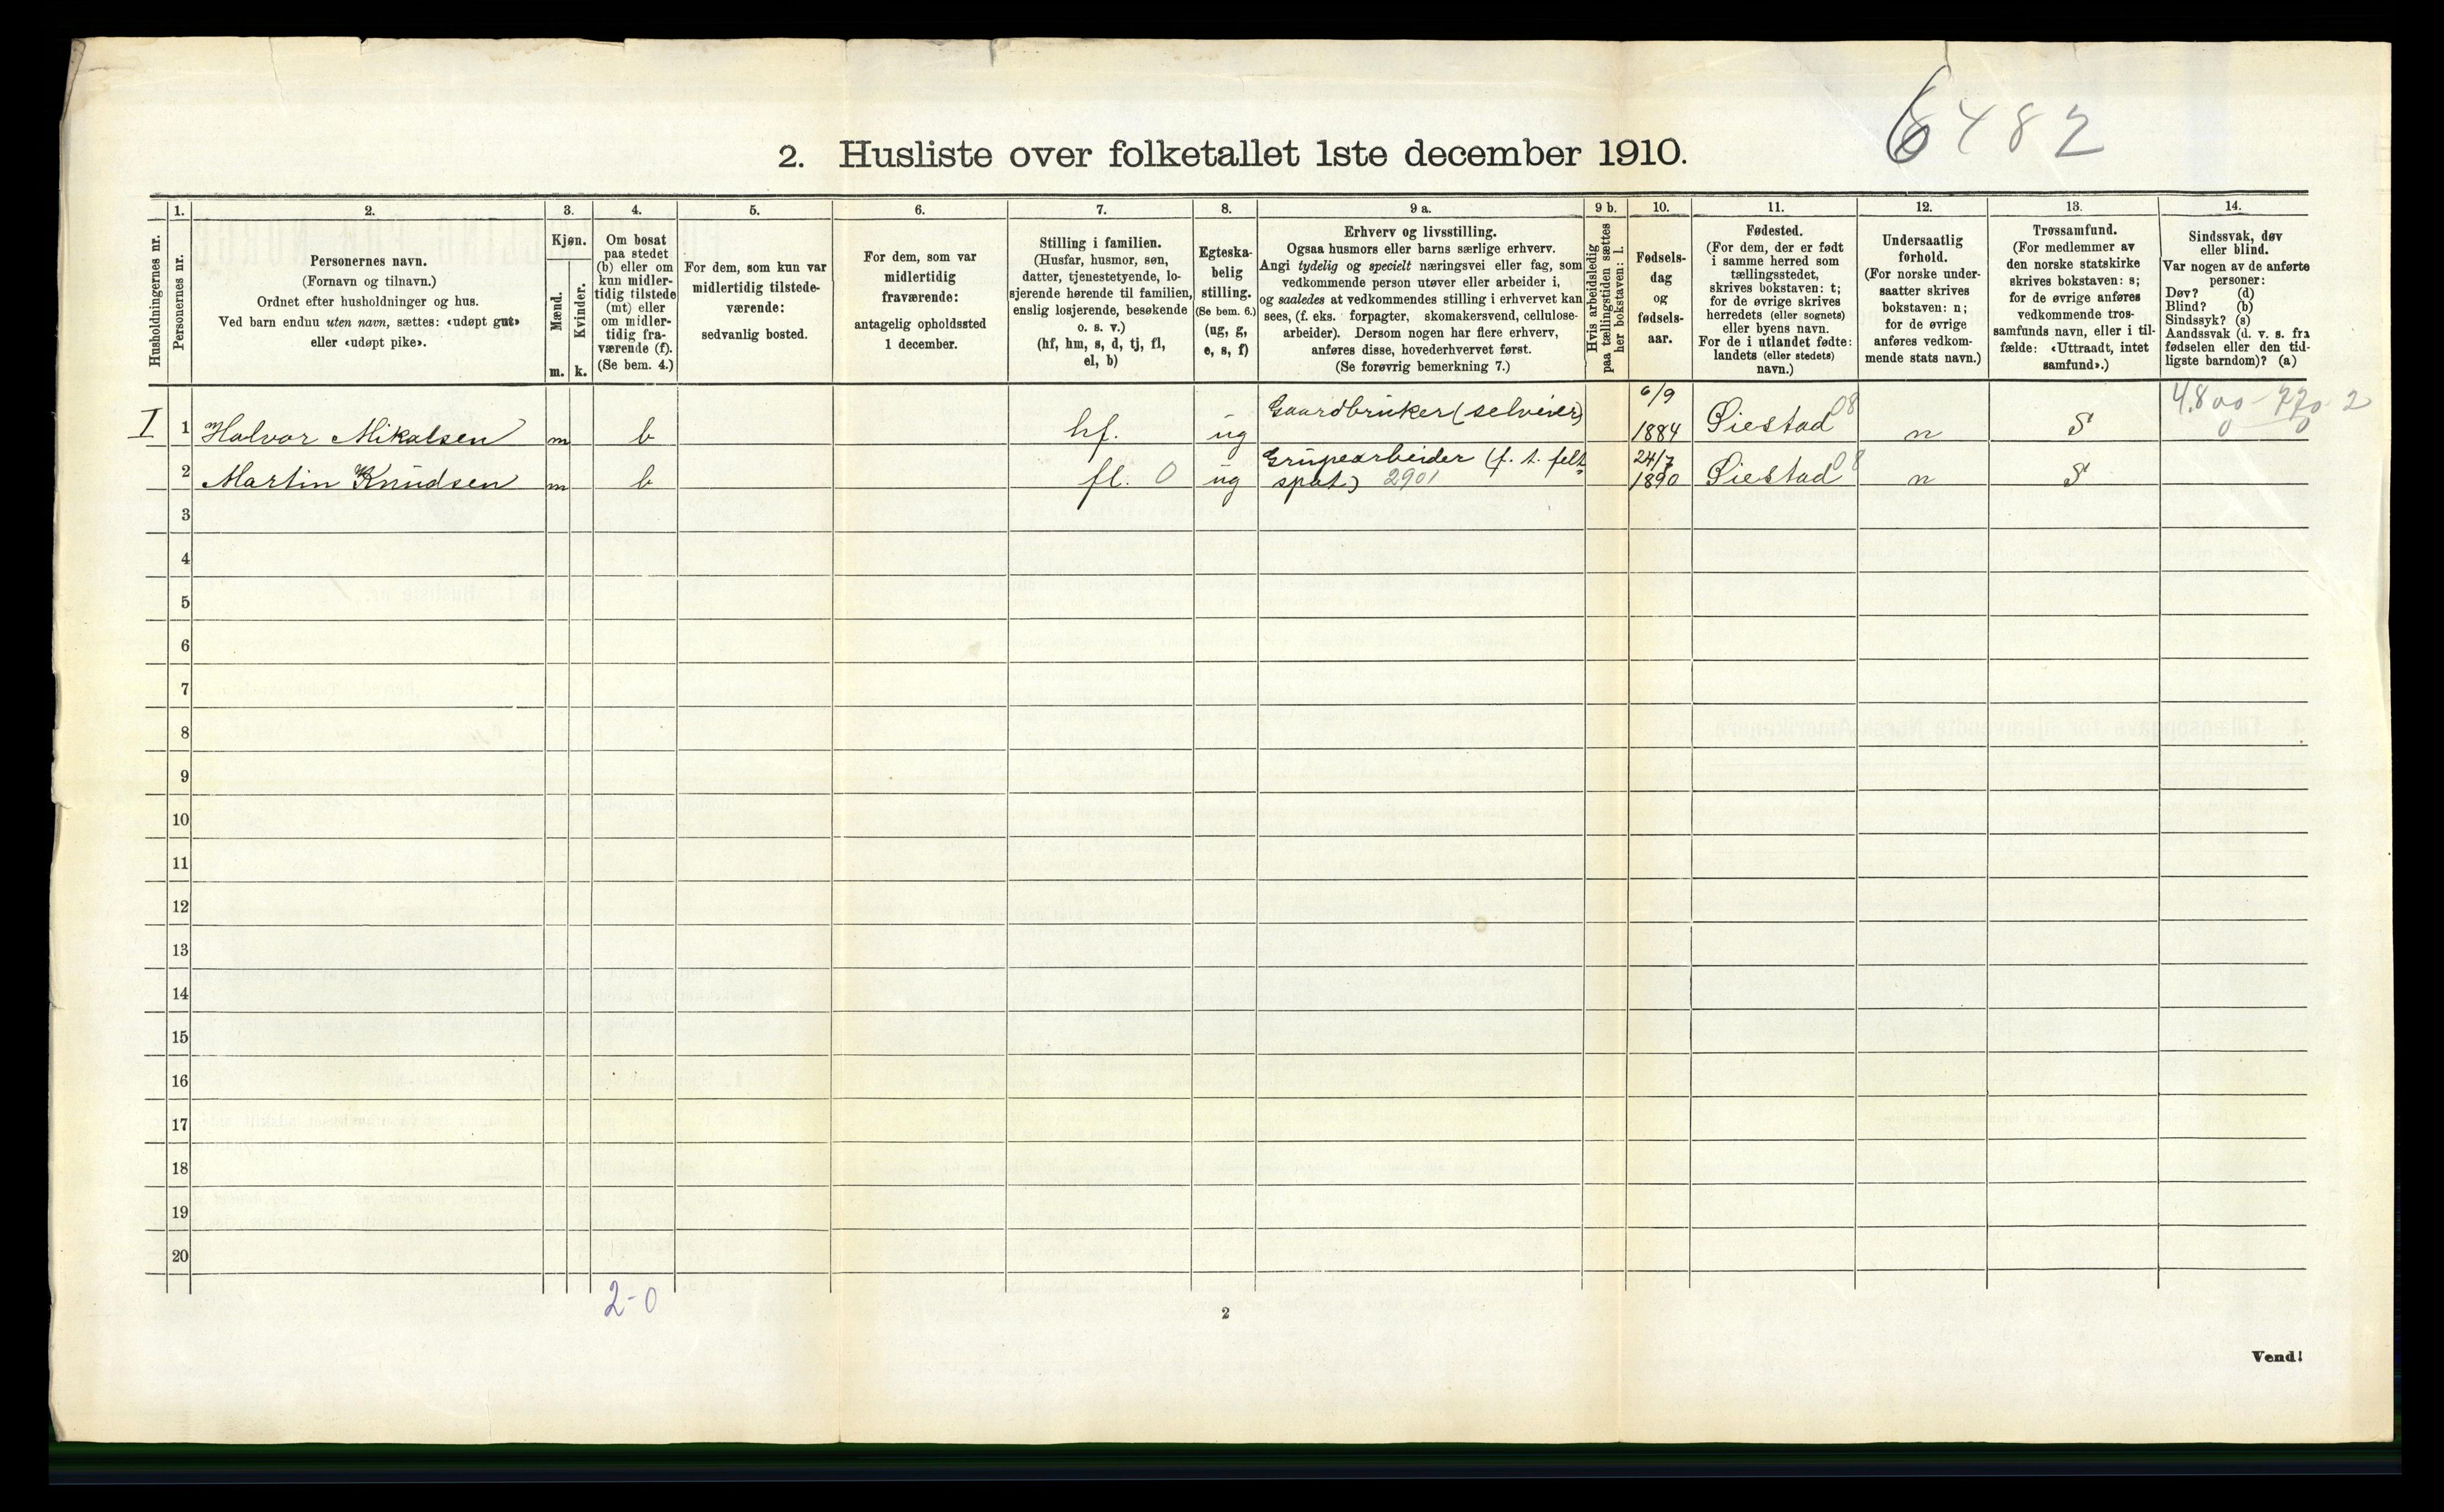 6482
2. Husliste over folketallet 1ste december 1910.
Husholdningernes nr.
1.
Personernes nr.
2.
Personernes navn.
(Fornavn og tilnavn.)
Ordnet efter husholdninger og hus.
Ved barn endnu uten navn, sættes: «udøpt gut»
eller «udøpt pike».
3.
Kjøn.
Mænd.
Kvinder.
m. k.
4.
Om bosat
paa stedet
(b) eller om
kun midler-
tidig tilstede
(mt) eller
om midler-
tidig fra-
værende (f).
(Se bem. 4.)
5.
For dem, som kun var
midlertidig tilstede-
værende:
sedvanlig bosted.
6.
For dem, som var
midlertidig
fraværende:
antagelig opholdssted
1 december.
7.
Stilling i familien.
(Husfar, husmor, søn,
datter, tjenestetyende, lo-
sjerende hørende til familien,
enslig losjerende, besøkende
o. s. v.)
(hf, hm, s, d, tj, fl,
el, b)
8.
Egteska-
belig
stilling.
(Se bem. 6.)
(ug, g,
e, s, f)
9 a.
Erhverv og livsstilling.
Ogsaa husmors eller barns særlige erhverv.
Angi tydelig og specielt næringsvei eller fag, som
vedkommende person utøver eller arbeider i,
og saaledes at vedkommendes stilling i erhvervet kan
sees, (f. eks. forpagter, skomakersvend, cellulose-
arbeider). Dersom nogen har flere erhverv,
anføres disse, hovederhvervet først.
(Se forøvrig bemerkning 7.)
9 b.
Hvis arbeidsledig
paa tællingstiden sættes
her bokstaven: l.
10.
Fødsels-
dag
og
fødsels-
aar.
11.
Fødested.
(For dem, der er født
i samme herred som
tællingsstedet,
skrives bokstaven: t;
for de øvrige skrives
herredets (eller sognets)
eller byens navn.
For de i utlandet fødte:
landets (eller stedets)
navn.)
12.
Undersaatlig
forhold.
(For norske under-
saatter skrives
bokstaven: n;
for de øvrige
anføres vedkom-
mende stats navn.)
13.
Trossamfund.
(For medlemmer av
den norske statskirke
skrives bokstaven: s;
for de øvrige anføres
vedkommende tros-
samfunds navn, eller i til-
fælde: «Uttraadt, intet
samfund».)
14.
Sindssvak, døv
eller blind.
Var nogen av de anførte
personer:
Døv? (d)
Blind? (b)
Sindssyk? (s)
Aandssvak (d. v. s. fra
fødselen eller den tid-
ligste barndom)? (a)
I 1 Halvor Mikalsen m b hf. ug Gaardbruker (selveier) 6/9 1884 Øiestad 08 n S 4.800 - 770 - 2
0 0
2 Martin Knudsen m b fl. 0 ug Grupearbeider (f. t. felt-
spat) 2901 24/7 1890 Øiestad 08 n S
3
4
5
6
7
8
9
10
11
12
13
14
15
16
17
18
19
20
2-0
2
Vend!